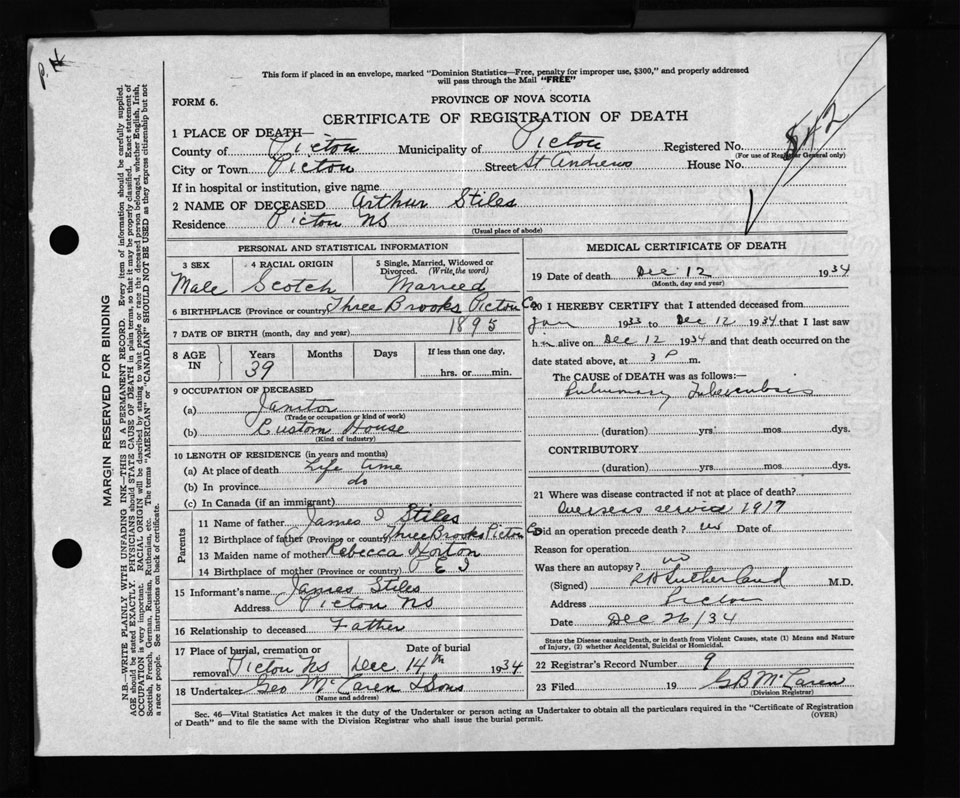 P.N.
This form if placed in an envelope, marked "Dominion Statistics—Free, penalty for improper use, $300," and properly addressed
will pass through the Mail "FREE"
FORM 6.
PROVINCE OF NOVA SCOTIA
CERTIFICATE OF REGISTRATION OF DEATH
842
1 PLACE OF DEATH—
County of Pictou Municipality of Pictou Registered No.
(For use of Registrar General only)
City or Town Pictou Street St Andrews House No.
If in hospital or institution, give name
2 NAME OF DECEASED Arthur Stiles
Residence Pictou NS
(Usual place of abode)
PERSONAL AND STATISTICAL INFORMATION
3 SEX 4 RACIAL ORIGIN 5 Single, Married, Widowed or
Divorced. (Write the word)
Male Scotch Married
6 BIRTHPLACE (Province or country) Three Brooks Pictou Co
7 DATE OF BIRTH (month, day and year) 1895
8 AGE IN Years Months Days If less than one day,
39 hrs. or min.
9 OCCUPATION OF DECEASED
(a) Janitor
(Trade or occupation or kind of work)
(b) Custom House
(Kind of industry)
10 LENGTH OF RESIDENCE (in years and months)
(a) At place of death Life time
(b) In province do
(c) In Canada (if an immigrant)
Parents
11 Name of father James I Stiles
12 Birthplace of father (Province or country) Three Brooks Pictou Co
13 Maiden name of mother Rebecca Horton
14 Birthplace of mother (Province or country) P E I
15 Informant's name James Stiles
Address Pictou NS
16 Relationship to deceased Father
17 Place of burial, cremation or Date of burial
removal Pictou NS Dec. 14th 1934
18 Undertaker Geo McLaren & Sons
(Name and address)
MEDICAL CERTIFICATE OF DEATH
19 Date of death Dec 12 1934
(Month, day and year)
20 I HEREBY CERTIFY that I attended deceased from
Jan 1933 to Dec 12 1934 that I last saw
him alive on Dec 12 1934 and that death occurred on the
date stated above, at 3 P m.
The CAUSE OF DEATH was as follows:—
Pulmonary Tuberculosis
(duration) yrs. mos. dys.
CONTRIBUTORY
(duration) yrs. mos. dys.
21 Where was disease contracted if not at place of death?
Overseas service 1917
Did an operation precede death? no Date of
Reason for operation
Was there an autopsy? no
(Signed) R H Sutherland M.D.
Address Pictou
Date Dec 26/34
State the Disease causing Death, or in death from Violent Causes, state (1) Means and Nature
of Injury, (2) whether Accidental, Suicidal or Homicidal.
22 Registrar's Record Number 9
23 Filed 19 G B McLaren
(Division Registrar)
Sec. 46—Vital Statistics Act makes it the duty of the Undertaker or person acting as Undertaker to obtain all the particulars required in the "Certificate of Registration
of Death" and to file the same with the Division Registrar who shall issue the burial permit. (OVER)
MARGIN RESERVED FOR BINDING
N.B.—WRITE PLAINLY WITH UNFADING INK—THIS IS A PERMANENT RECORD. Every item of information should be carefully supplied.
AGE should be stated EXACTLY. PHYSICIANS should STATE CAUSE OF DEATH in plain terms, so that it may be properly classified. Exact statement of
OCCUPATION is very important. RACIAL ORIGIN will be described by stating to what people or race the deceased person belonged, whether English, Irish,
Scottish, French, German, Russian, Ruthenian, etc. The terms "AMERICAN" or "CANADIAN" SHOULD NOT BE USED as they express citizenship but not
a race or people. See instructions on back of certificate.